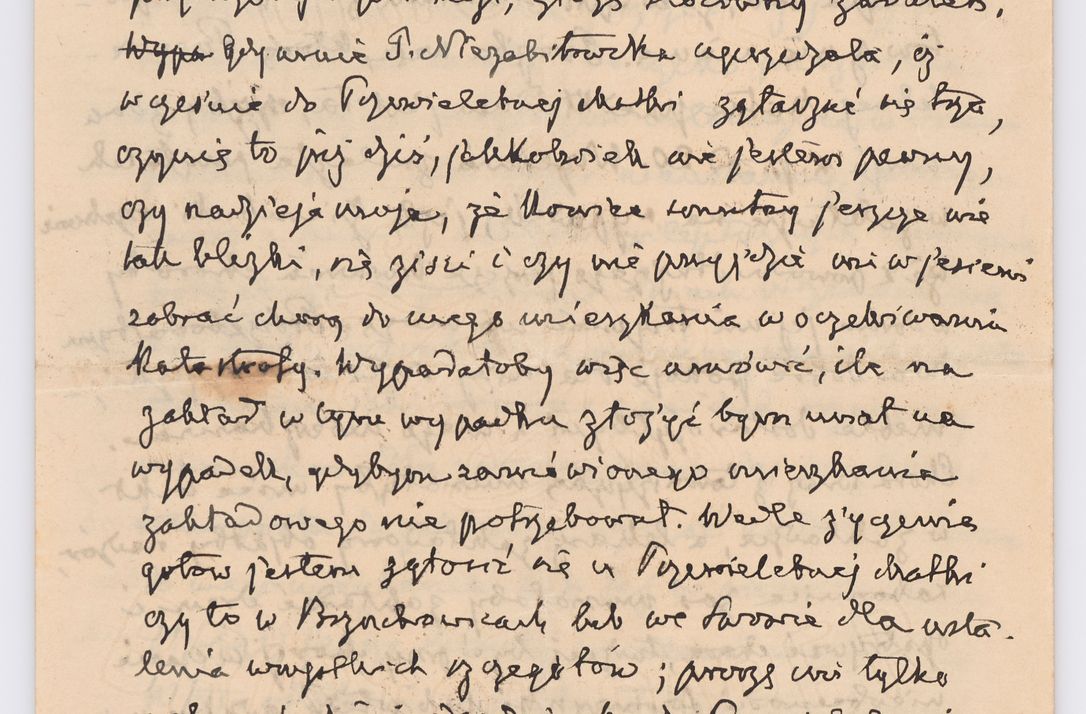 Wypa Gdy mnie P. Niezabitowska uprzedzała, iż
wcześnie do Przewielebnej Matki zgłaszać się trza,
czynię to już dziś, jakkolwiek nie jestem pewny,
czy nadzieja moja, że koniec smutny jeszcze nie
tak bliski, się ziści i czy nie przyjdzie mi w jesieni
zabrać chorą do mego mieszkania w oczekiwaniu
Katastrofy. Wypadałoby więc umówić, ile na
zakład w tym wypadku złożyć bym miał na
wypadek, gdybym zamówionego mieszkania
zakładowego nie potrzebował. Wedle życzenia
gotów jestem zgłosić się u Przewielebnej Matki
czy to w Brzuchowicach lub we Lwowie dla usta-
lenia wszystkich szczegółów; proszę mi tylko